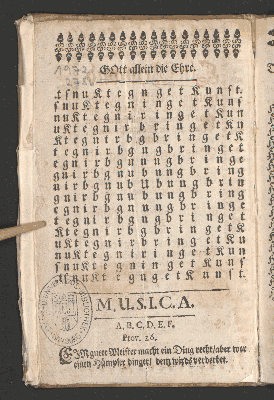 GOtt allein die Ehre.
t s n u K t e g n g e t K u n s t.
s n u K t e g n i n g e t K u n s
n u K t e g n i r i n g e t K u n
u K t e g n i r b r i n g e t K u
K t e g n i r b g b r i n g e t K
t e g n i r b g n g b r i n g e t
e g n i r b g n u n g b r i n g e
g n i r b g n u b u n g b r i n g
n i r b g n u b U b u n g b r i n
g n i r b g n u b u n g b r i n g
e g n i r b g n u n g b r i n g e
t e g n i r b g n g b r i n g e t
K t e g n i r b g b r i n g e t K
u K t e g n i r b r i n g e t K u
n u K t e g n i r i n g e t K u n
s n u K t e g n i n g e t K u n s
t s n u K t e g n g e t K u n s t.
M. U. S. I. C. A.
A, B, C, D, E, F,
Prov. 26.
EIN guter Meister macht ein Ding recht/ aber wer
einen Hümpler dinget/ dem wirds verderbet.